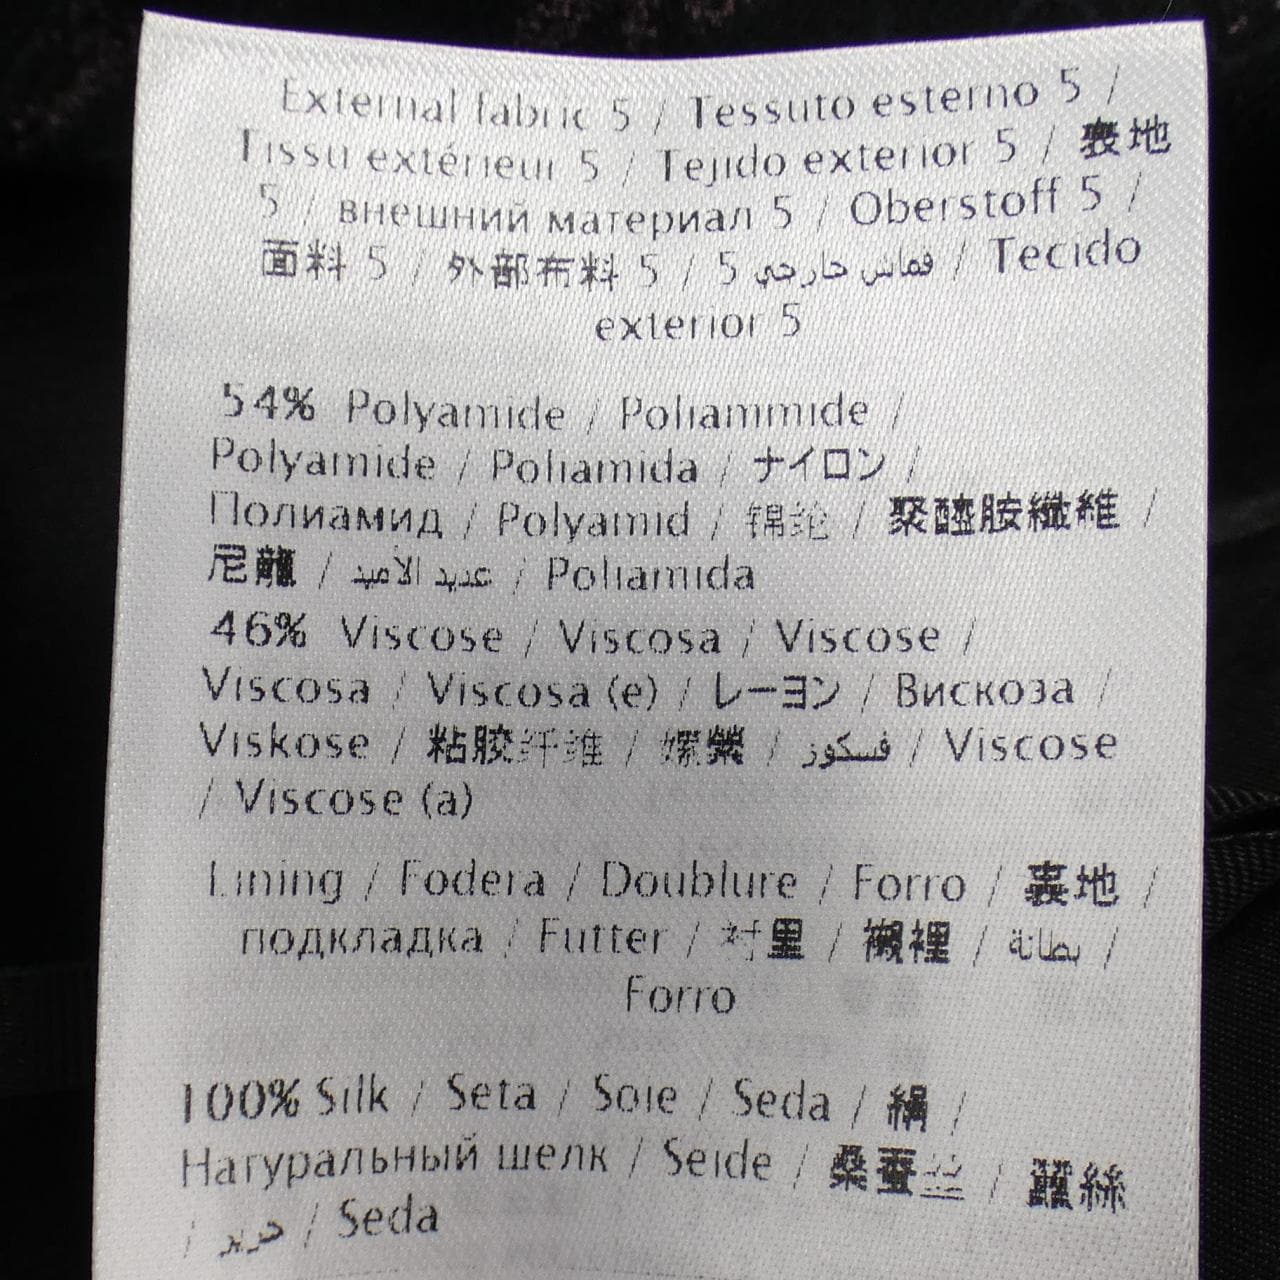 External fabric 5 / Tessuto esterno 5 /
Tissu extérieur 5 / Tejido exterior 5 / 表地
5 / внешний материал 5 / Oberstoff 5 /
面料 5 / 外部布料 5 / 5 قماش خارجي / Tecido
exterior 5
54% Polyamide / Poliammide /
Polyamide / Poliamida / ナイロン /
Полиамид / Polyamid / 锦纶 / 聚醯胺纖維 /
尼龍 / عديد الأميد / Poliamida
46% Viscose / Viscosa / Viscose /
Viscosa / Viscosa (e) / レーヨン / Вискоза /
Viskose / 粘胶纤维 / 嫘縈 / فسكوز / Viscose
/ Viscose (a)
Lining / Fodera / Doublure / Forro / 裏地 /
подкладка / Futter / 衬里 / 襯裡 / بطانة /
Forro
100% Silk / Seta / Soie / Seda / 絹 /
Натуральный шелк / Seide / 桑蚕丝 / 蠶絲
/ حرير / Seda